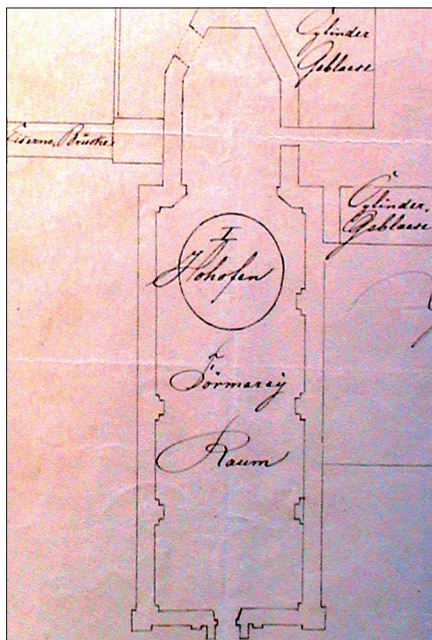 Cylinder
Geblaese
Eiserne Brücke
Cylinder
Geblaese
I
Hohofen
Förmereÿ
Raum